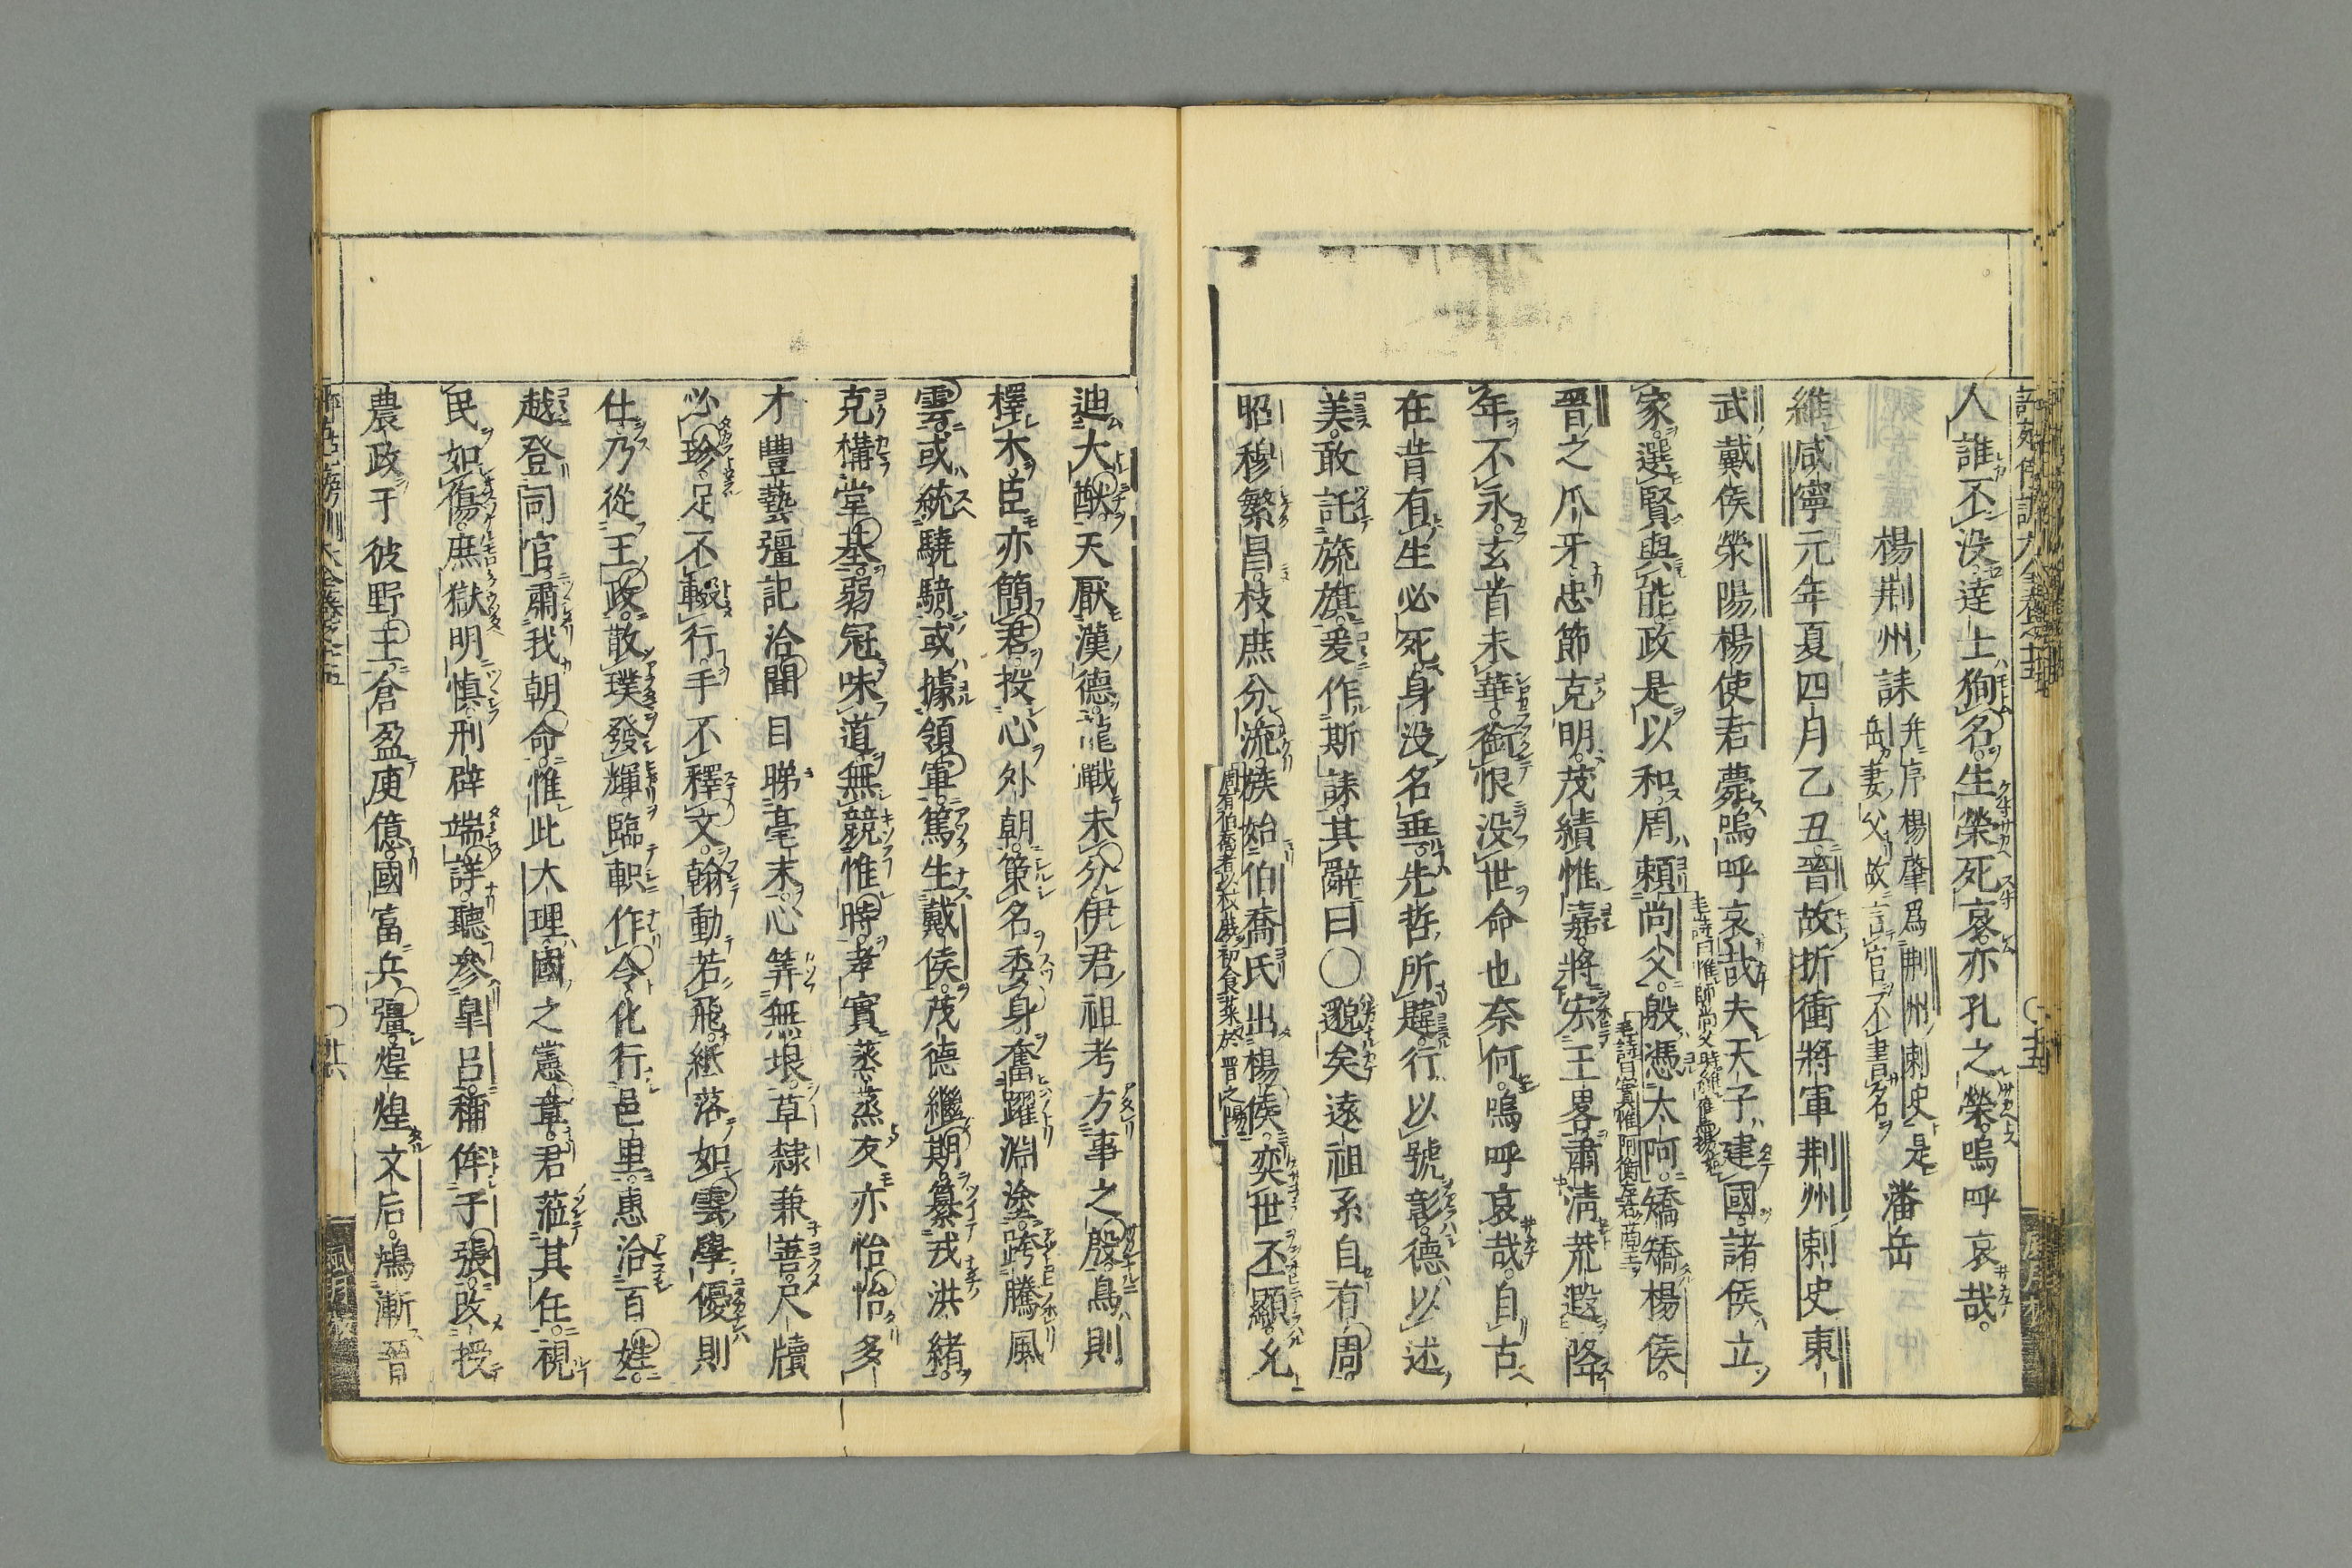 人誰不没達士狥名。生榮死哀。亦孔之榮。嗚呼哀哉。
楊荆州誄
并序楊肇爲荆州刺史是
岳妻父故言官不書名
潘岳
維咸寧元年夏四月乙丑。晉故折衝將軍荆州刺史東
武戴侯滎陽楊使君薨嗚呼哀哉夫天子建國。諸侯立
家。選賢與能。政是以和。周頼尚父。殷憑太阿。矯矯楊侯。
毛詩曰惟師尚父時維鷹揚
毛詩曰實惟阿衡左右商王
晉之爪牙。忠節克明。茂績惟嘉。將宏王畧。肅清荒遐。降
年不永。玄首未華。銜恨没世。命也奈何。嗚呼哀哉。自古
在昔。有生必死。身没名垂。先哲所韙。行以號彰。德以述
美。敢託旒旗。爰作斯誄。其辭曰〇邈矣遠祖。系自有周。
昭穆繁昌。枝庶分流。族始伯喬氏出楊侯。奕世丕顯。允
迪大猷。天厭漢德。龍戰未分。伊君祖考。方事之殷。鳥則
擇木。臣亦簡君。投心外朝。策名委身。奮躍淵塗。跨騰風
雲。或統驍騎。或據領軍。篤生戴侯。茂德繼期。纂戎洪緒。
克構堂基。弱冠味道。無競惟時。孝實蒸蒸。友亦怡怡。多
才豐藝。彊記洽聞。目睇毫末。心筭無垠。草隷兼善。尺牘
必珍。足不輟行。手不釋文。翰動若飛。紙落如雲。學優則
仕。乃從王政。散璞發輝。臨軹作令。化行邑里。惠洽百姓。
越登司官。肅我朝命。惟此大理。國之憲章。君蒞其任。視
民如傷。庶獄明慎。刑辟端詳。聽參皐呂。稱侔于張。改授
農政。于彼野王。倉盈庾億。國富兵彊。煌煌文后。鴻漸晉